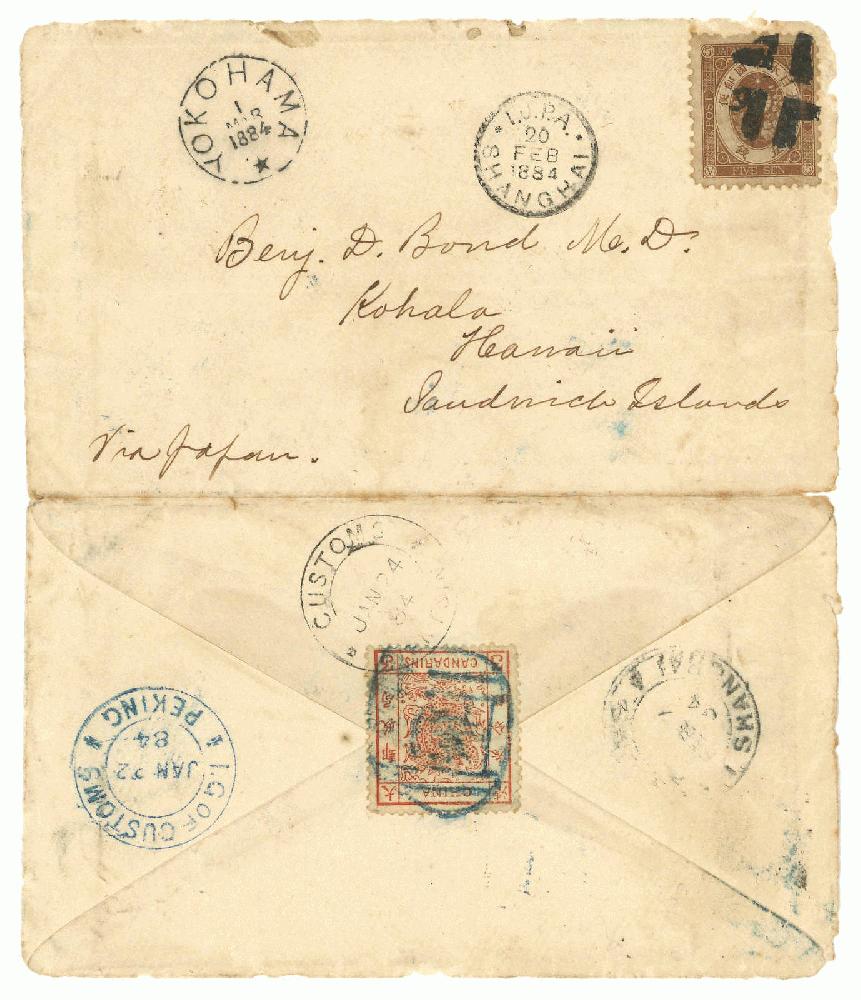 YOKOHAMA
1
MAR
1884
I.J.P.A.
20
FEB
1884
SHANGHAI
5
FIVE SEN
Benj. D. Bond M.D.
Kohala
Hawaii
Sandwich Islands
Via Japan.
CUSTOMS
JAN 24
84
3 CANDARINS 3
CHINA
大
清
郵
政
局
I.G. OF CUSTOMS
PEKING
JAN 22
84
SHANGHAI